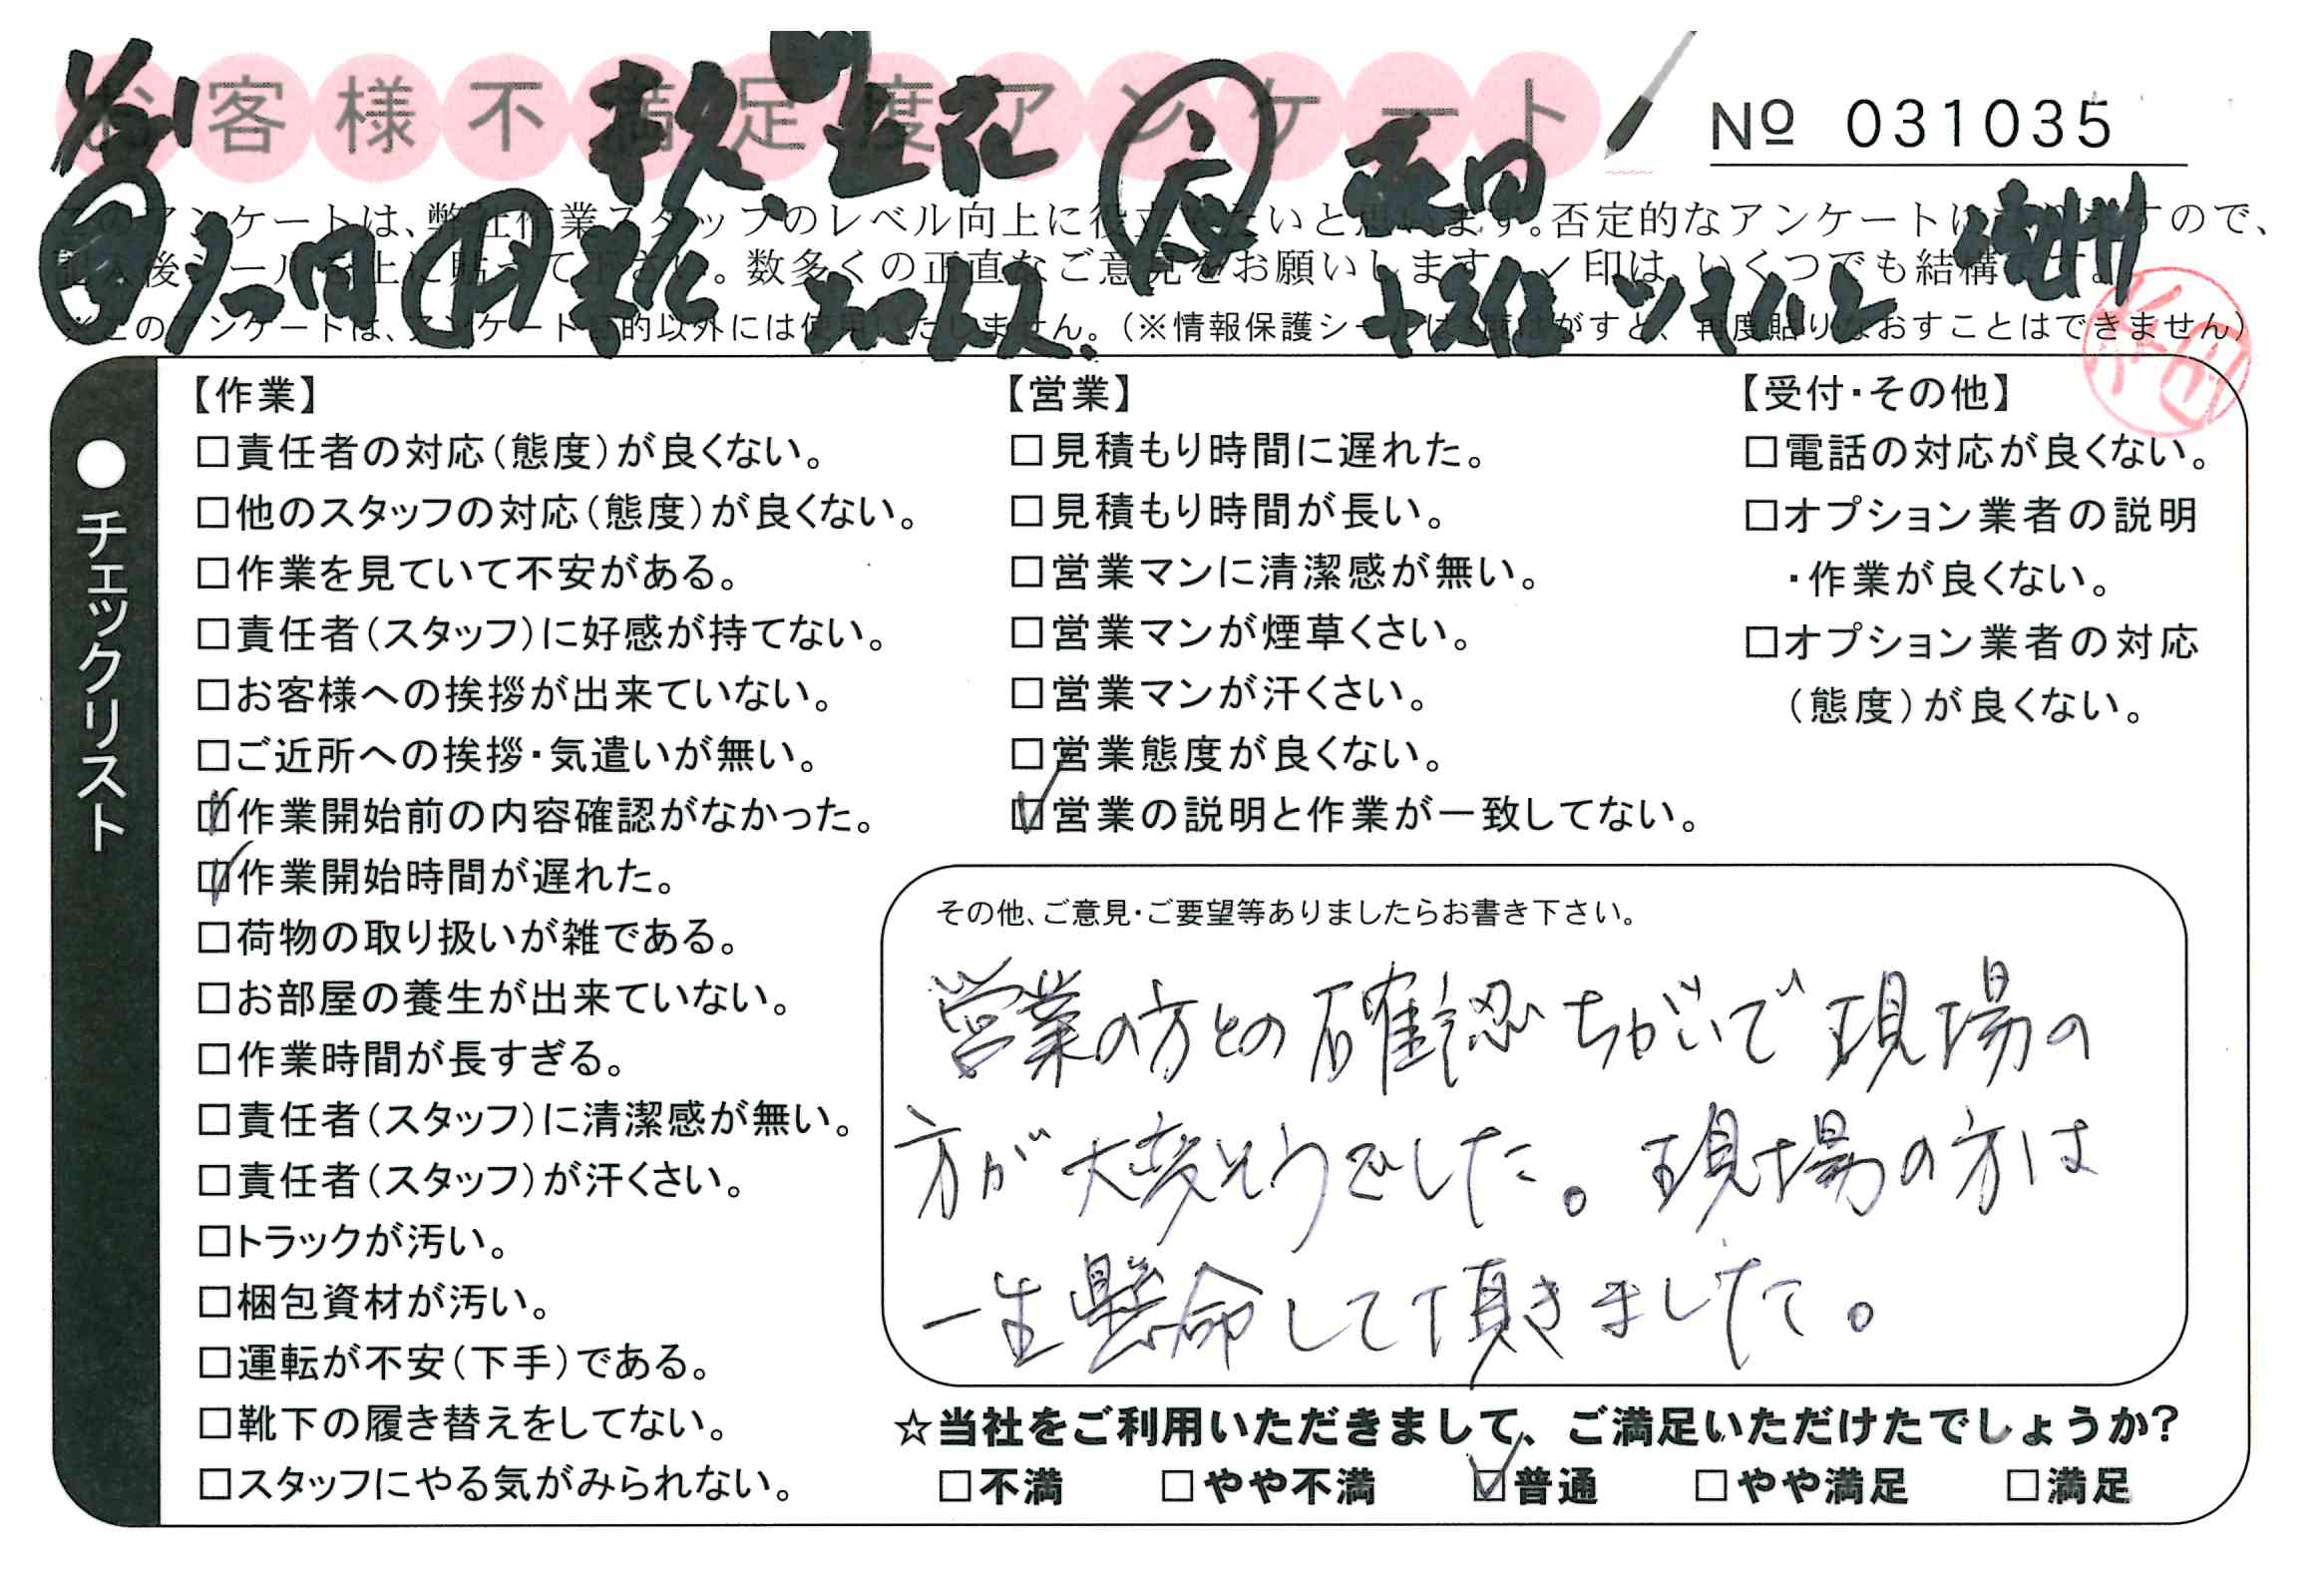 お客様不満足度アンケート
№ 031035
このアンケートは、弊社作業スタッフのレベル向上に役立てたいと思います。否定的なアンケートになりますので、
記入後シールを上に貼って下さい。数多くの正直なご意見をお願いします。✓印は、いくつでも結構です。
※このアンケートは、アンケート目的以外には使用いたしません。(※情報保護シールは1度はがすと、再度貼りなおすことはできません)
●チェックリスト
【作業】
□責任者の対応(態度)が良くない。
□他のスタッフの対応(態度)が良くない。
□作業を見ていて不安がある。
□責任者(スタッフ)に好感が持てない。
□お客様への挨拶が出来ていない。
□ご近所への挨拶・気遣いが無い。
☑作業開始前の内容確認がなかった。
☑作業開始時間が遅れた。
□荷物の取り扱いが雑である。
□お部屋の養生が出来ていない。
□作業時間が長すぎる。
□責任者(スタッフ)に清潔感が無い。
□責任者(スタッフ)が汗くさい。
□トラックが汚い。
□梱包資材が汚い。
□運転が不安(下手)である。
□靴下の履き替えをしてない。
□スタッフにやる気がみられない。
【営業】
□見積もり時間に遅れた。
□見積もり時間が長い。
□営業マンに清潔感が無い。
□営業マンが煙草くさい。
□営業マンが汗くさい。
□営業態度が良くない。
☑営業の説明と作業が一致してない。
【受付・その他】
□電話の対応が良くない。
□オプション業者の説明
・作業が良くない。
□オプション業者の対応
(態度)が良くない。
その他、ご意見・ご要望等ありましたらお書き下さい。
営業の方との確認ちがいで現場の
方が大変そうでした。現場の方は
一生懸命して頂きました。
☆当社をご利用いただきまして、ご満足いただけたでしょうか?
□不満 □やや不満 ☑普通 □やや満足 □満足